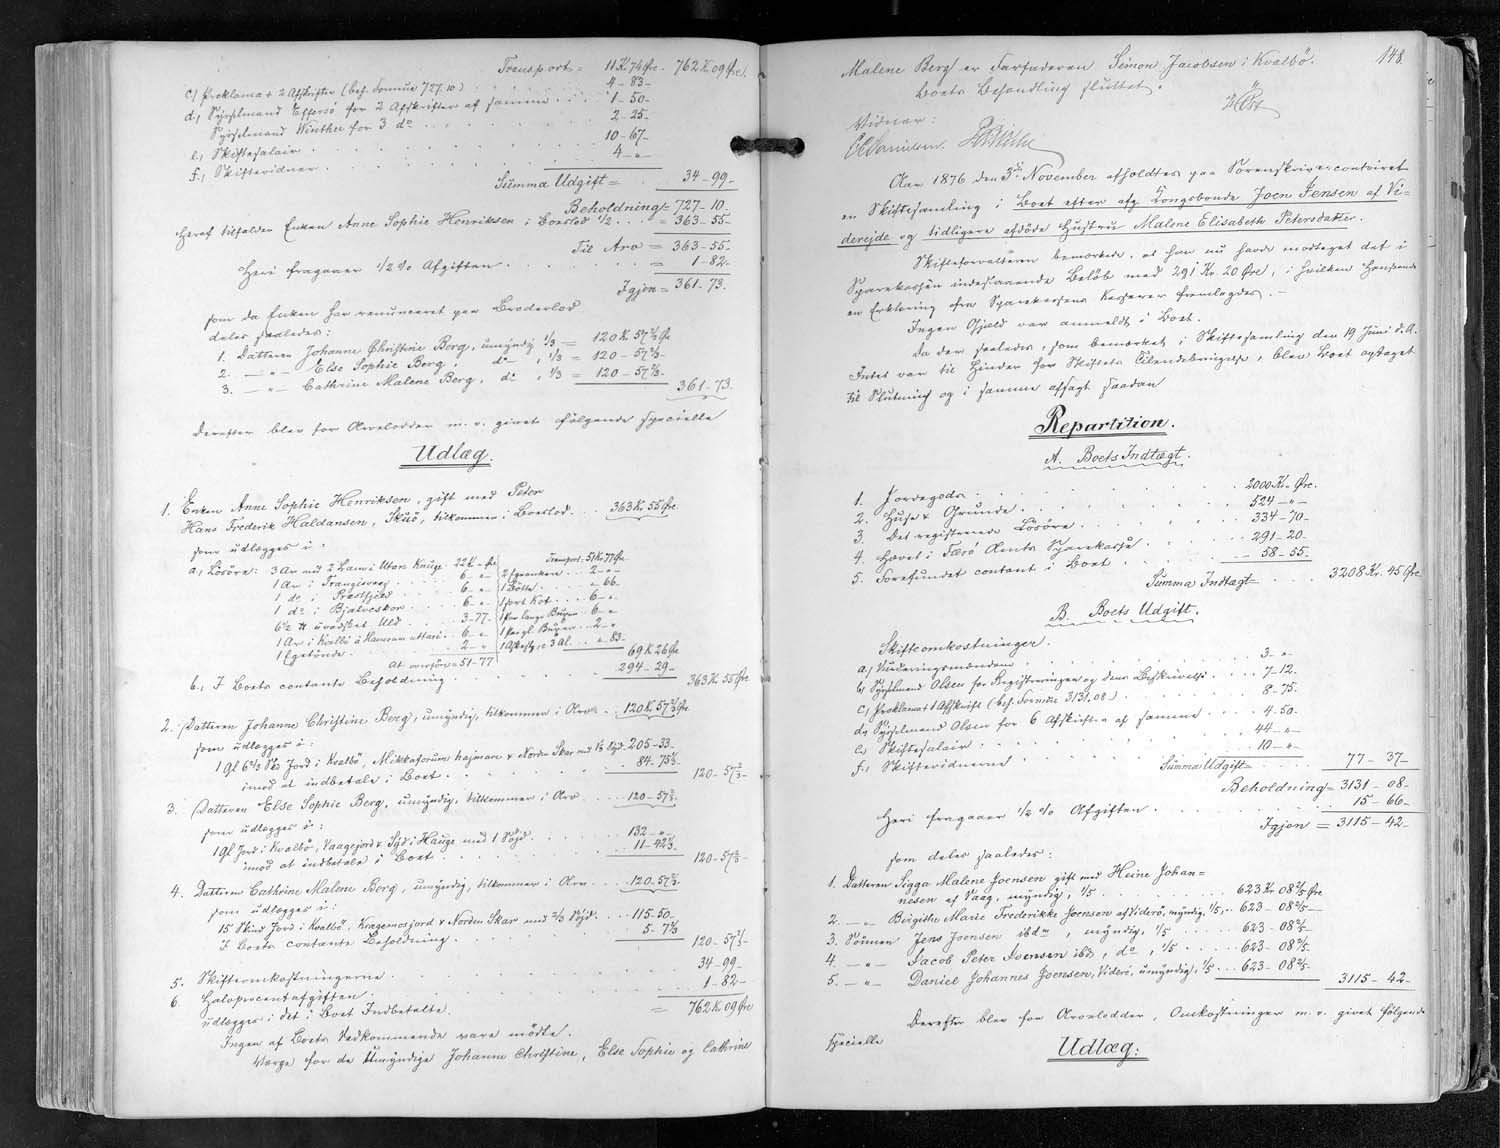 Transport = 11 Kr. 74 Øre. 762 Kr. 09 Øre.
c, Proklama + 2 Afskrifter (beh. Formue 727.10) 4-83-
d, Sysselmand Effersö for 2 Afskrifter af samme 1-50-
Sysselmand Winther for 3 do 2-25-
e, Skiftesalair 10-67-
f, Skiftevidner 4-"-
Summa Udgift = 34-99-
Beholdning = 727-10.
Heraf tilfalder Enken Anne Sophie Henriksen i Boeslod 1/2 = 363-55-
Til Arv = 363-55-
Heri fragaaer 1/2 % Afgiften = 1-82-
Igjen = 361-73.
som da Enken har renunceret paa Broderlod
deles saaledes:
1. Datteren Johanne Christine Berg, umyndig 1/3 = 120 Kr. 57 2/3 Øre
2. —"— Else Sophie Berg, do, 1/3 = 120-57 2/3-
3. —"— Cathrine Malene Berg, do, 1/3 = 120-57 2/3- 361-73.
Derefter blev for Arvelodder m.v. givet følgende specielle
Udlæg.
1. Enken Anne Sophie Henriksen, gift med Peter
Hans Frederik Haldansen, Skuö, tilkommer i Boeslod 363 Kr. 55 Øre
som udlægges i:
a, Lösöre: 3 Aar med 2 Lam i Utan Hauge 22 Kr. " Øre Transport = 51 Kr. 77 Øre
6-"- 2-"-
1 do i Præstfjeld 6-"- 1 Bötte "-66-
1 do i Bjalveskor 6-"- 1 sort Kot 6-"-
6 1/2 ℔ uvasket Uld 3-77- 1 Par lange Buxer 6-"-
1 Aar i Kvalbö á Hamran uttari 6-"- 1 Par gl. Buxer 2-"-
1 Egetönde 2-"- 3 Al. "-83-
At overføre = 51-77 69 Kr. 26 Øre
b, I Boets contante Beholdning 294-29- 363 Kr. 55 Øre
2. Datteren Johanne Christine Berg, umyndig, tilkommer i Arv 120 Kr. 57 2/3 Øre
som udlægges i:
1 Gl 6 2/3 Sk Jord i Kvalbö, Mikkaforum hajmare & Norden Skar med 1 1/3 Söjd 205-33-
imod at indbetale i Boet 84-75 1/3- 120-57 2/3-
3. Datteren Else Sophie Berg, umyndig, tilkommer i Arv 120-57 2/3-
som udlægges i:
1 Gl Jord i Kvalbö, Vaagejord & Syd i Hauge med 1 Söjd 132-"-
imod at indbetale i Boet 11-42 1/3- 120-57 2/3-
4. Datteren Cathrine Malene Berg, umyndig, tilkommer i Arv 120-57 2/3-
som udlægges i:
15 Skind Jord i Kvalbö, Kragemosjord & Norden Skar med 2/3 Söjd 115-50-
I Boets contante Beholdning 5-7 2/3- 120-57 2/3-
5. Skifteomkostningerne 34-99-
6. Halvprocentafgiften 1-82-
udlægges i det i Boet Indbetalte. = 762 Kr. 09 Øre
Ingen af Boets Vedkommende vare mödte.
Værge for de Umyndige Johanne Christine, Else Sophie og Cathrine
148.
Malene Berg er Farfaderen Simon Jacobsen i Kvalbö.
Boets Behandling sluttet.
Vidner:
Aar 1876 den 3die November afholdtes paa Sorenskrivercontoiret
en Skiftesamling i Boet efter afg. Kongsbonde Joen Jensen af Vi=
derejde og tidligere afdöde Hustru Malene Elisabeth Petersdatter.
Skifteforvalteren bemærkede, at han nu havde modtaget det i
Sparekassen indestaaende Beløb med 291 Kr. 20 Øre, i hvilken Henseende
en Erklæring fra Sparekassens Kasserer fremlagdes. -
Ingen Gjeld var anmeldt i Boet.
Da der saaledes, som bemærket i Skiftesamling den 19 Juni d.A.
Intet var til Hinder for Skiftets Tilendebringelse, blev Boet optaget
til Slutning og i samme afsagt saadan
Repartition.
A. Boets Indtægt.
1. Jordegods 2000 Kr. " Øre.
2. Huse & Grunde 524-"-
3. Det registrerede Lösöre 334-70-
4. Hævet i Færö Amts Sparekasse 291-20-
5. Forefundet contant i Boet 58-55-
Summa Indtægt = 3208 Kr. 45 Øre
B. Boets Udgift.
Skifteomkostninger.
a, Vurderingsmændene 3-"-
b, Sysselmand Olsen for Registreringen og dens Beskrivelse 7-12.
c, Proklama + 1 Afskrift (beh. Formue 3131,08) 8-75.
d, Sysselmand Olsen for 6 Afskrifter af samme 4-50.
e, Skiftesalair 44-"-
f, Skiftevidnerne 10-"-
Summa Udgift = 77-37-
Beholdning = 3131-08-
Heri fragaaer 1/2 % Afgiften 15-66-
Igjen = 3115-42-
som deles saaledes:
1. Datteren Sigga Malene Joensen gift med Heine Johan=
nesen af Vaag, myndig, 1/5 623 Kr. 08 2/5 Øre
2. —"— Birgithe Marie Frederikke Joensen af Viderö, myndig, 1/5 623-08 2/5-
3. Sönnen Jens Joensen ibdm, myndig, 1/5 623-08 2/5-
4. —"— Jacob Peter Joensen ibd, do, 1/5 623-08 2/5-
5. —"— Daniel Johannes Joensen, Viderö, umyndig, 1/5 623-08 2/5- 3115-42-
Derefter blev for Arvelodder, Omkostninger m.v. givet følgende
specielle
Udlæg: